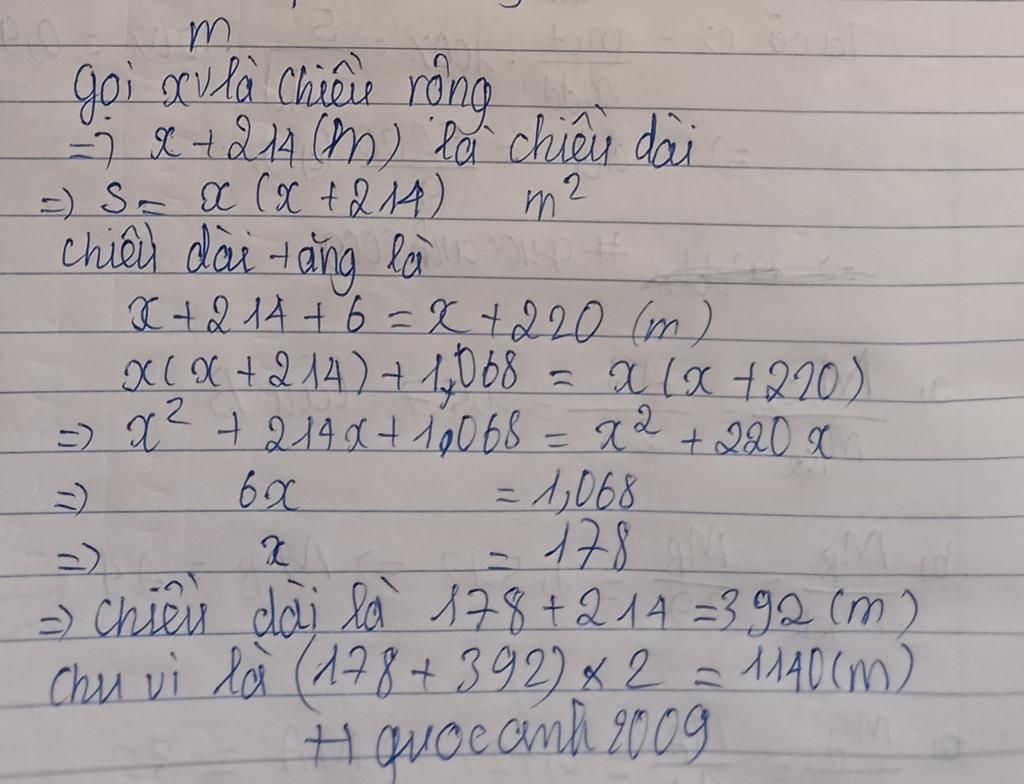 m
gọi x là chiều rộng
=> x + 214 (m) là chiều dài
=> S = x (x + 214) m²
chiều dài tăng là
x + 214 + 6 = x + 220 (m)
x(x + 214) + 1,068 = x(x + 220)
=> x² + 214x + 1,068 = x² + 220x
=> 6x = 1,068
=> x = 178
=> chiều dài là 178 + 214 = 392 (m)
chu vi là (178 + 392) × 2 = 1140 (m)
++ quocanh 2009